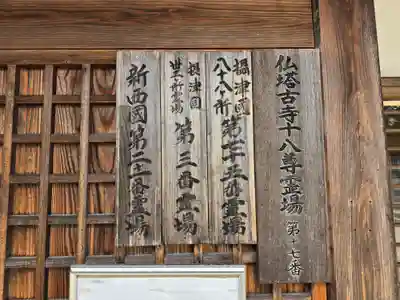 仏塔古寺十八尊霊場 第十七番
摂津國
八十八所 第七十五番霊場
摂津國
卅三所霊場 第三番霊場
新西國第二十二番霊場